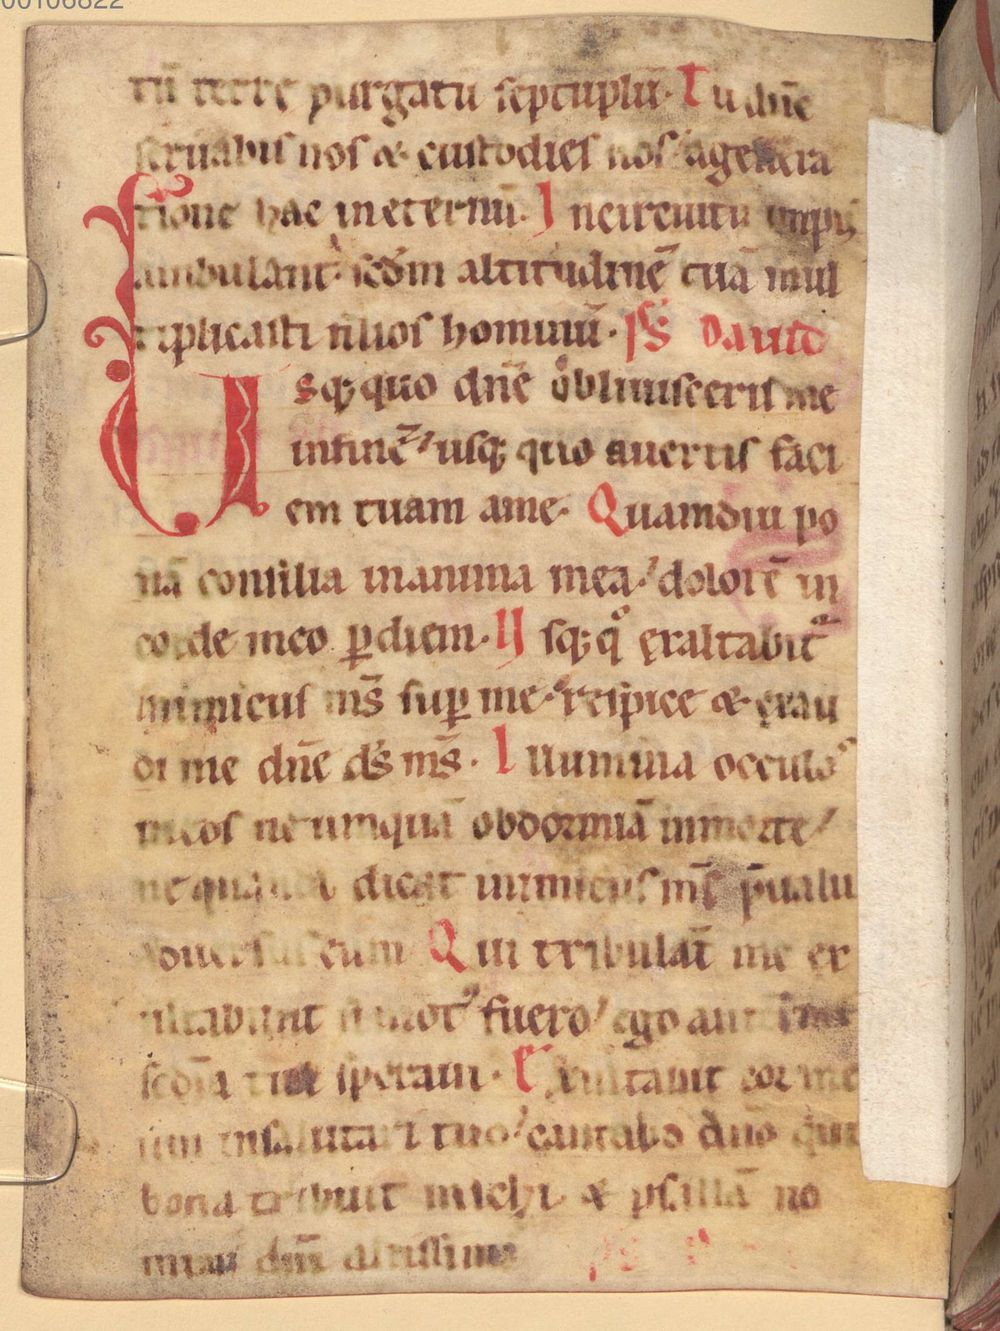 00106822
tū terre purgatū septuplū. Tu dn̄e
seruabis nos & custodies nos agenera
tione hac ineternū. Incircuitu impij
ambulant. scd̄m altitudinē tuā mul
tiplicasti filios hominū. ps̄ Dauid
Usq; quo dn̄e obliuisceris me
infinē usq; quo auertis faci
em tuam ame. Quamdiu po
nā consilia inanima mea / dolorē in
corde meo ꝑdiem. Usq; qͦ exaltabit᷑
inimicus ms̄ suꝑ me. respice & exau
di me dn̄e ds̄ ms̄. Illumina occulos
meos ne umquā obdormiā inmorte /
ne quando dicat inimicus ms̄ p̄ualui
aduersus eum Qui tribulāt me ex
ultabunt si mot᷑ fuero / ego aut
scd̄ia tua speraui. Exultauit cor me
um insalutari tuo / cantabo dn̄o qui
bona tribuit michi & psallā no
mini dn̄i altissimi ps